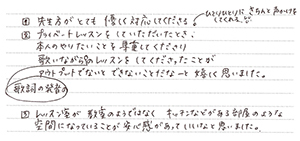 ① 先生方がとても優しく対応してくださる。
ひとりひとりに きちんと声かけをしてくれる、など
② プライベートレッスンをしていただいたとき、
本人のやりたいことを尊重してくださり
歌いながらのレッスンをしてくださったことが
アウトプットでないとできないことだなーと嬉しく思いました。
歌詞の発音の
③ レッスン室が教室のようではなく キッチンなどがある部屋のような
空間になっていることが安心感があっていいなと思いました。